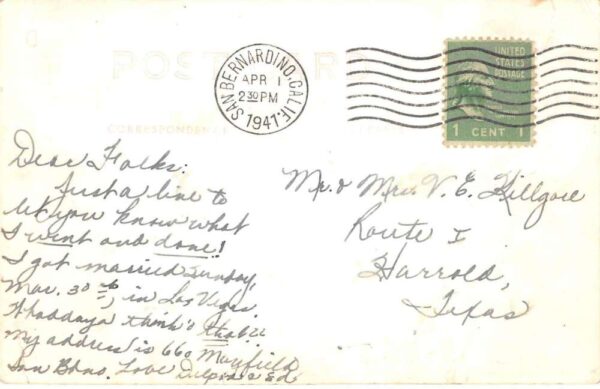 POST CARD
SAN BERNARDINO, CALIF.
APR 1
2 30 PM
1941
UNITED
STATES
POSTAGE
1 CENT 1
Dear Folks:
Just a line to
let you know what
I went and done!
I got married Sunday,
Mar. 30th, in Las Vegas.
Whaddaya think's that??
My address is 660 Mayfield
San Bdno. Love
& Ed
Mr. & Mrs. V. E. Killgore
Route 1
Harrold,
Texas